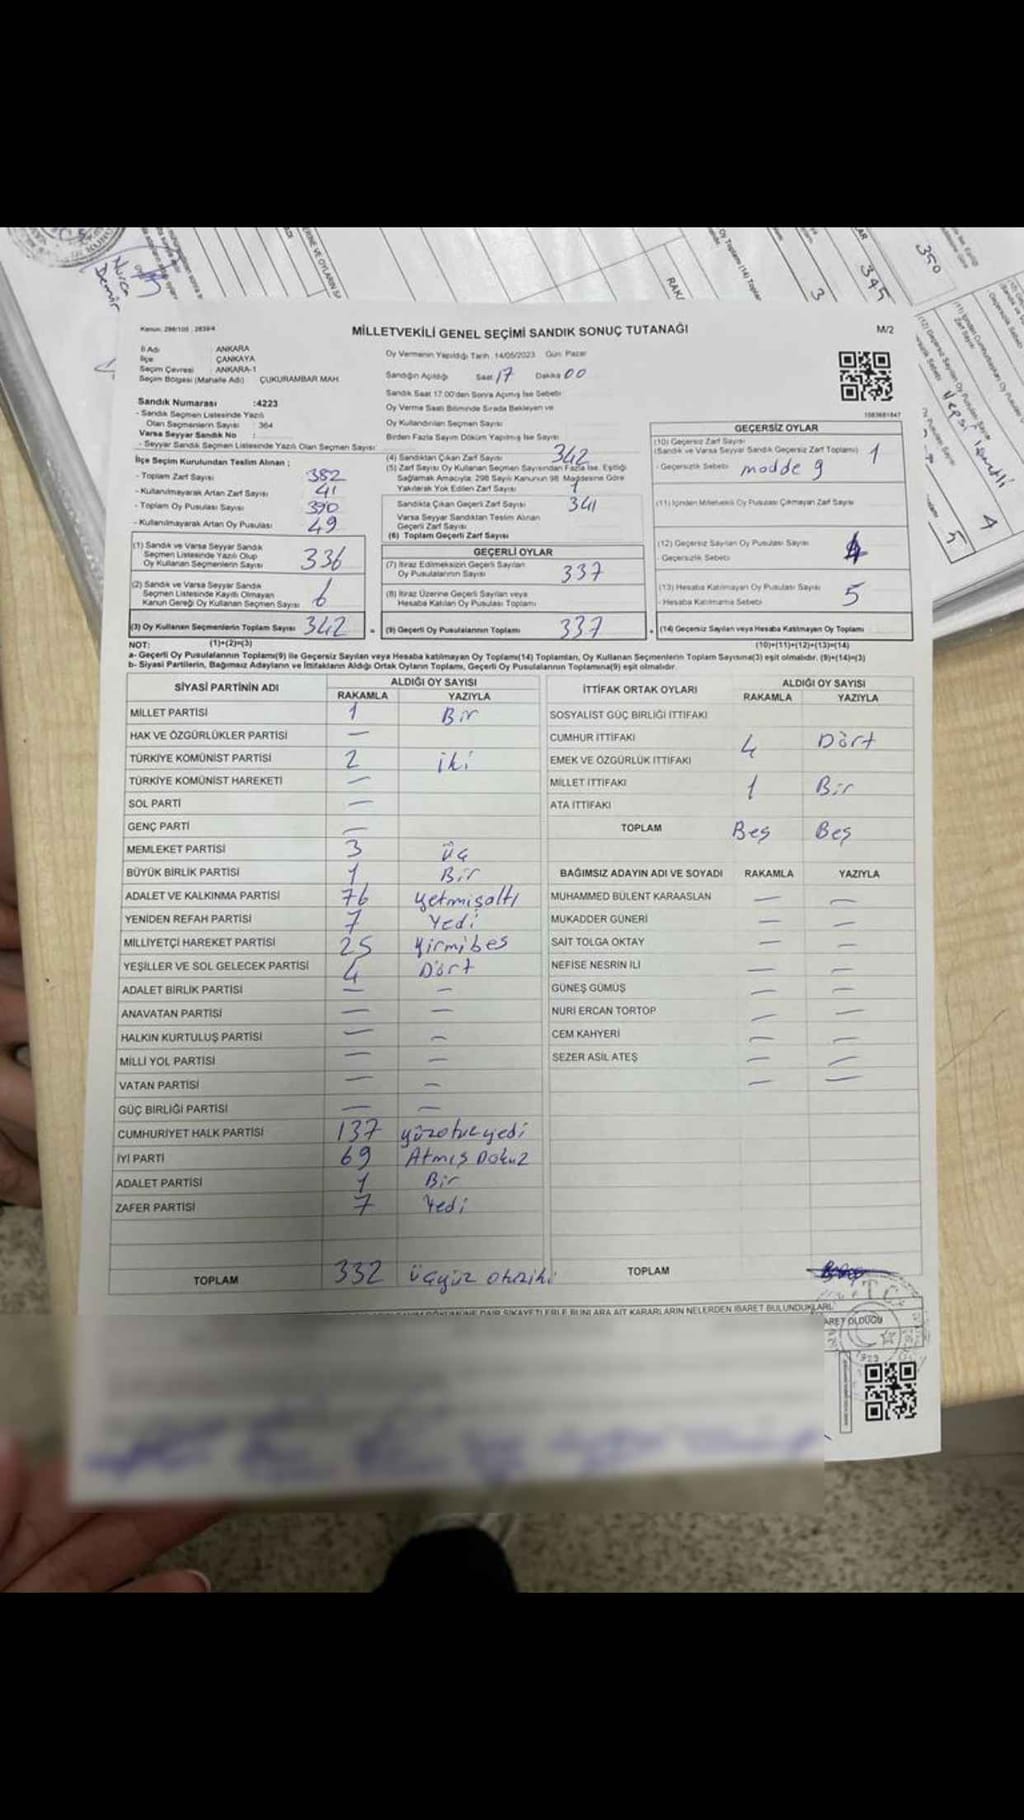 Kanun: 298/105 , 2839/4
MİLLETVEKİLİ GENEL SEÇİMİ SANDIK SONUÇ TUTANAĞI
M/2
İl Adı ANKARA
İlçe ÇANKAYA
Seçim Çevresi ANKARA-1
Seçim Bölgesi (Mahalle Adı) ÇUKURAMBAR MAH.
Oy Vermenin Yapıldığı Tarih 14/05/2023 Gün Pazar
Sandığın Açıldığı Saat 17 Dakika 00
Sandık Saat 17.00'den Sonra Açılmış İse Sebebi
Oy Verme Saati Bitiminde Sırada Bekleyen ve
Oy Kullandırılan Seçmen Sayısı
Birden Fazla Sayım Döküm Yapılmış İse Sayısı
Sandık Numarası :4223
- Sandık Seçmen Listesinde Yazılı
Olan Seçmenlerin Sayısı : 364
Varsa Seyyar Sandık No :
- Seyyar Sandık Seçmen Listesinde Yazılı Olan Seçmen Sayısı
İlçe Seçim Kurulundan Teslim Alınan ;
- Toplam Zarf Sayısı 382
- Kullanılmayarak Artan Zarf Sayısı 41
- Toplam Oy Pusulası Sayısı 390
- Kullanılmayarak Artan Oy Pusulası 49
(1) Sandık ve Varsa Seyyar Sandık
Seçmen Listesinde Yazılı Olup
Oy Kullanan Seçmenlerin Sayısı 336
(2) Sandık ve Varsa Seyyar Sandık
Seçmen Listesinde Kayıtlı Olmayan
Kanun Gereği Oy Kullanan Seçmen Sayısı 6
(3) Oy Kullanan Seçmenlerin Toplam Sayısı 342
(4) Sandıktan Çıkan Zarf Sayısı 342
(5) Zarf Sayısı Oy Kullanan Seçmen Sayısından Fazla İse, Eşitliği
Sağlamak Amacıyla; 298 Sayılı Kanunun 98. Maddesine Göre
Yakılarak Yok Edilen Zarf Sayısı 1
Sandıkta Çıkan Geçerli Zarf Sayısı 341
Varsa Seyyar Sandıktan Teslim Alınan
Geçerli Zarf Sayısı
(6) Toplam Geçerli Zarf Sayısı
GEÇERLİ OYLAR
(7) İtiraz Edilmeksizin Geçerli Sayılan
Oy Pusulalarının Sayısı 337
(8) İtiraz Üzerine Geçerli Sayılan veya
Hesaba Katılan Oy Pusulası Toplamı
= (9) Geçerli Oy Pusulalarının Toplamı 337
1083681847
GEÇERSİZ OYLAR
(10) Geçersiz Zarf Sayısı
(Sandık ve Varsa Seyyar Sandık Geçersiz Zarf Toplamı) 1
- Geçersizlik Sebebi madde 9
(11) İçinden Milletvekili Oy Pusulası Çıkmayan Zarf Sayısı
(12) Geçersiz Sayılan Oy Pusulası Sayısı 4
- Geçersizlik Sebebi
(13) Hesaba Katılmayan Oy Pusulası Sayısı 5
- Hesaba Katılmama Sebebi
+ (14) Geçersiz Sayılan veya Hesaba Katılmayan Oy Toplamı
NOT: (1)+(2)=(3) (10)+(11)+(12)+(13)=(14)
a- Geçerli Oy Pusulalarının Toplamı(9) ile Geçersiz Sayılan veya Hesaba katılmayan Oy Toplamı(14) Toplamları, Oy Kullanan Seçmenlerin Toplam Sayısına(3) eşit olmalıdır. (9)+(14)=(3)
b- Siyasi Partilerin, Bağımsız Adayların ve İttifakların Aldığı Ortak Oyların Toplamı, Geçerli Oy Pusulalarının Toplamına(9) eşit olmalıdır.
SİYASİ PARTİNİN ADI ALDIĞI OY SAYISI
RAKAMLA YAZIYLA
MİLLET PARTİSİ 1 Bir
HAK VE ÖZGÜRLÜKLER PARTİSİ —
TÜRKİYE KOMÜNİST PARTİSİ 2 iki
TÜRKİYE KOMÜNİST HAREKETİ —
SOL PARTİ —
GENÇ PARTİ —
MEMLEKET PARTİSİ 3 üç
BÜYÜK BİRLİK PARTİSİ 1 Bir
ADALET VE KALKINMA PARTİSİ 76 yetmişaltı
YENİDEN REFAH PARTİSİ 7 Yedi
MİLLİYETÇİ HAREKET PARTİSİ 25 yirmibeş
YEŞİLLER VE SOL GELECEK PARTİSİ 4 Dört
ADALET BİRLİK PARTİSİ — —
ANAVATAN PARTİSİ — —
HALKIN KURTULUŞ PARTİSİ — —
MİLLİ YOL PARTİSİ — —
VATAN PARTİSİ — —
GÜÇ BİRLİĞİ PARTİSİ — —
CUMHURİYET HALK PARTİSİ 137 yüzotuzyedi
İYİ PARTİ 69 Atmış Dokuz
ADALET PARTİSİ 1 Bir
ZAFER PARTİSİ 7 Yedi
TOPLAM 332 üçyüz otuziki
İTTİFAK ORTAK OYLARI ALDIĞI OY SAYISI
RAKAMLA YAZIYLA
SOSYALİST GÜÇ BİRLİĞİ İTTİFAKI
CUMHUR İTTİFAKI 4 Dört
EMEK VE ÖZGÜRLÜK İTTİFAKI
MİLLET İTTİFAKI 1 Bir
ATA İTTİFAKI
TOPLAM Beş Beş
BAĞIMSIZ ADAYIN ADI VE SOYADI RAKAMLA YAZIYLA
MUHAMMED BÜLENT KARAASLAN — —
MUKADDER GÜNERİ — —
SAİT TOLGA OKTAY — —
NEFİSE NESRİN İLİ — —
GÜNEŞ GÜMÜŞ — —
NURİ ERCAN TORTOP — —
CEM KAHYERİ — —
SEZER ASİL ATEŞ — —
— —
TOPLAM
DÖKÜMÜNE DAİR ŞİKAYETLERLE BUNLARA AİT KARARLARIN NELERDEN İBARET BULUNDUKLARI,
ARET OLDUĞU
T.C.
1923
Nurcan
Demir
3
345
350
4
5